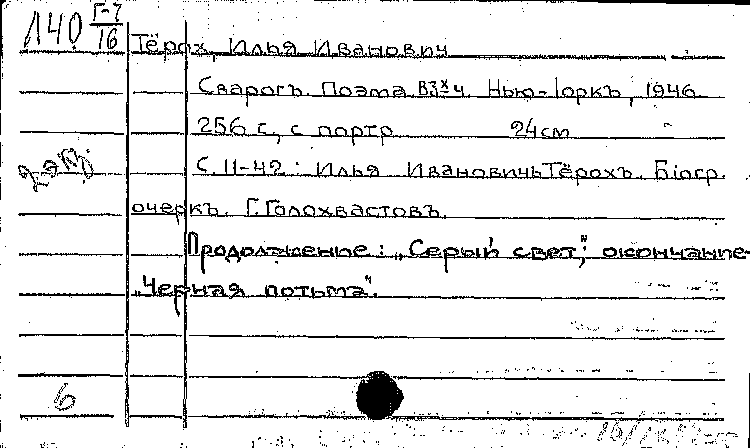 Л40 Г-7/16
Тёрох, Илья Иванович
Сварогъ. Поэма в 3х ч. Нью-Іоркъ, 1946.
256 с., с портр. 24 см
С. 11-42: Илья ИвановичъТёрохъ. Біогр.
очеркъ. Г. Голохвастовъ.
Продолжение: „Серый свет"; окончание-
„Черная потьма".
6